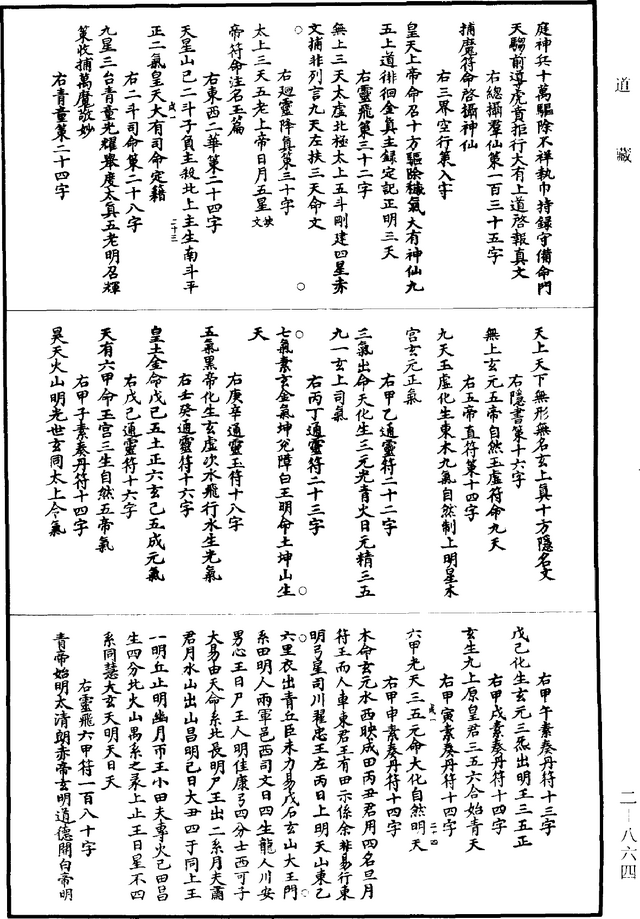 道藏
庭神兵十萬驅除不祥執巾持録守備命門
天騶前導虎賁拒行大有上道啓報真文
右總攝羣仙策一百三十五字
捕魔符命啓攝神仙
右三界空行策八字
皇天上帝命召十方驅除穢氣大有神仙九
五上道徘徊金真主録定記正明三天
右靈飛策三十二字
無上三天太虚北極太上五斗剛建四星赤
文捕非列言九天左扶三天命文
右廻靈降真策三十字
太上三天五老上帝日月五星
帝符命注名玉篇
右東西二華策二十四字
天星山己二斗子負主殺北上主生南斗平
正二氣皇天大有司命定籍
右二斗司命策二十八字
九星三台青童光耀舉度太真五老明召輝
策收捕萬魔敬妙
右青童策二十四字
天上天下無形無名玄上真十方隱名文
右隱書策十六字
無上玄元五帝自然玉虚符命九天
右五帝直符策十四字
九天玉虚化生東木九氣自然制上明星木
宫玄元正氣
右甲乙通靈符二十二字
三氣出命天化生三元光青火日元精三五
九一玄上司氣
右丙丁通靈符二十三字
七氣素玄金氣坤兊障白王明命土坤山生
天
右庚辛通靈玉符十八字
五氣黑帝化生玄虚次水飛行水生光氣
右壬癸通靈符十六字
皇土金命戊己五土正六玄己五成元氣
右戊己通靈符十六字
天有六甲命王宫三生自然五帝氣
右甲子素奏丹符十四字
昊天火山明光世玄同太上令氣
右甲午素奏丹符十三字
戊己化生玄元三炁出明王三五正
右甲戌素奏丹符十四字
玄生九上原皇君三五六合始青天
右甲寅素奏丹符十四字
六甲光天三五元命大化自然明天
右甲申素奏丹符十四字
本命玄元水西映成田丙丑君用四名旦月
符王而人車東君王有田示係余非易行東
明弓星司川耀忠王左丙日上明天山東乙
六里衣出青丘臣未力易戊石玄山大王門
系田明人兩軍邑西司文日四生龍人川安
男心王日尸王人明佳康弓四分士西可子
大易由天命系北長明尸王出二系月夫薾
君月水山出山昌明己日大丑四于同上王
一明丘止明幽月帀王小田夫專火己田昌
生四分北火山禺系之录上止王日星不四
系同慧大玄天明天日天
右靈飛六甲符一百八十字
青帝始明太清朗赤帝玄明道德開白帝明
二—八六四